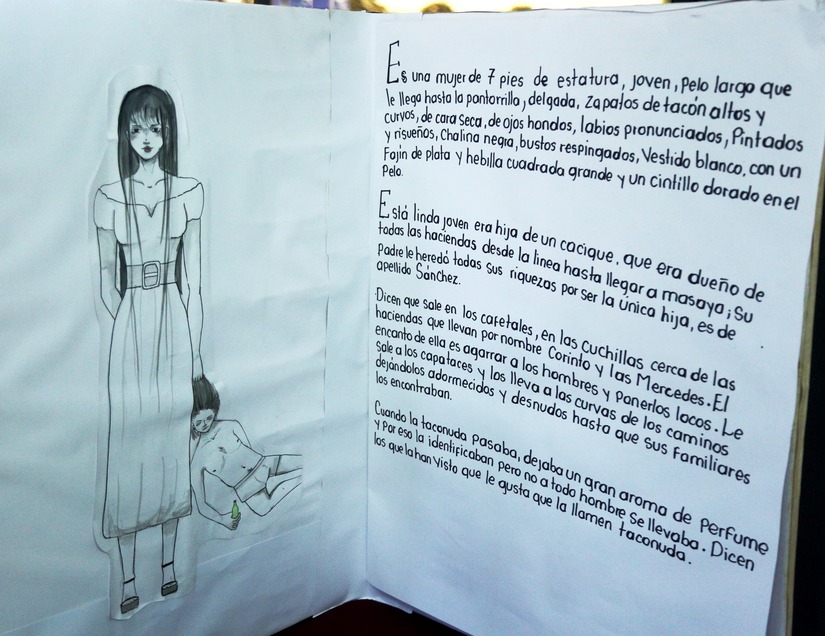 Es una mujer de 7 pies de estatura, joven, pelo largo que
le llega hasta la pantorrilla, delgada, zapatos de tacón altos y
curvos, de cara seca, de ojos hondos, labios pronunciados, Pintados
y risueños, Chalina negra, bustos respingados, Vestido blanco, con un
Fajín de plata y hebilla cuadrada grande y un cintillo dorado en el
Pelo.
Está linda joven era hija de un cacique, que era dueño de
todas las haciendas desde la linea hasta llegar a masaya; Su
Padre le heredó todas sus riquezas por ser la única hija, es de
apellido Sánchez.
Dicen que sale en los cafetales, en las Cuchillas cerca de las
haciendas que llevan por nombre Corinto y las Mercedes. El
encanto de ella es agarrar a los hombres y Ponerlos locos. Le
Sale a los capataces y los lleva a las curvas de los caminos
dejándolos adormecidos y desnudos hasta que sus Familiares
los encontraban.
Cuando la taconuda Pasaba, dejaba un gran aroma de Perfume
y Por eso la identificaban pero no a todo hombre Se llevaba. Dicen
los que la han Visto que le gusta que la llamen taconuda.